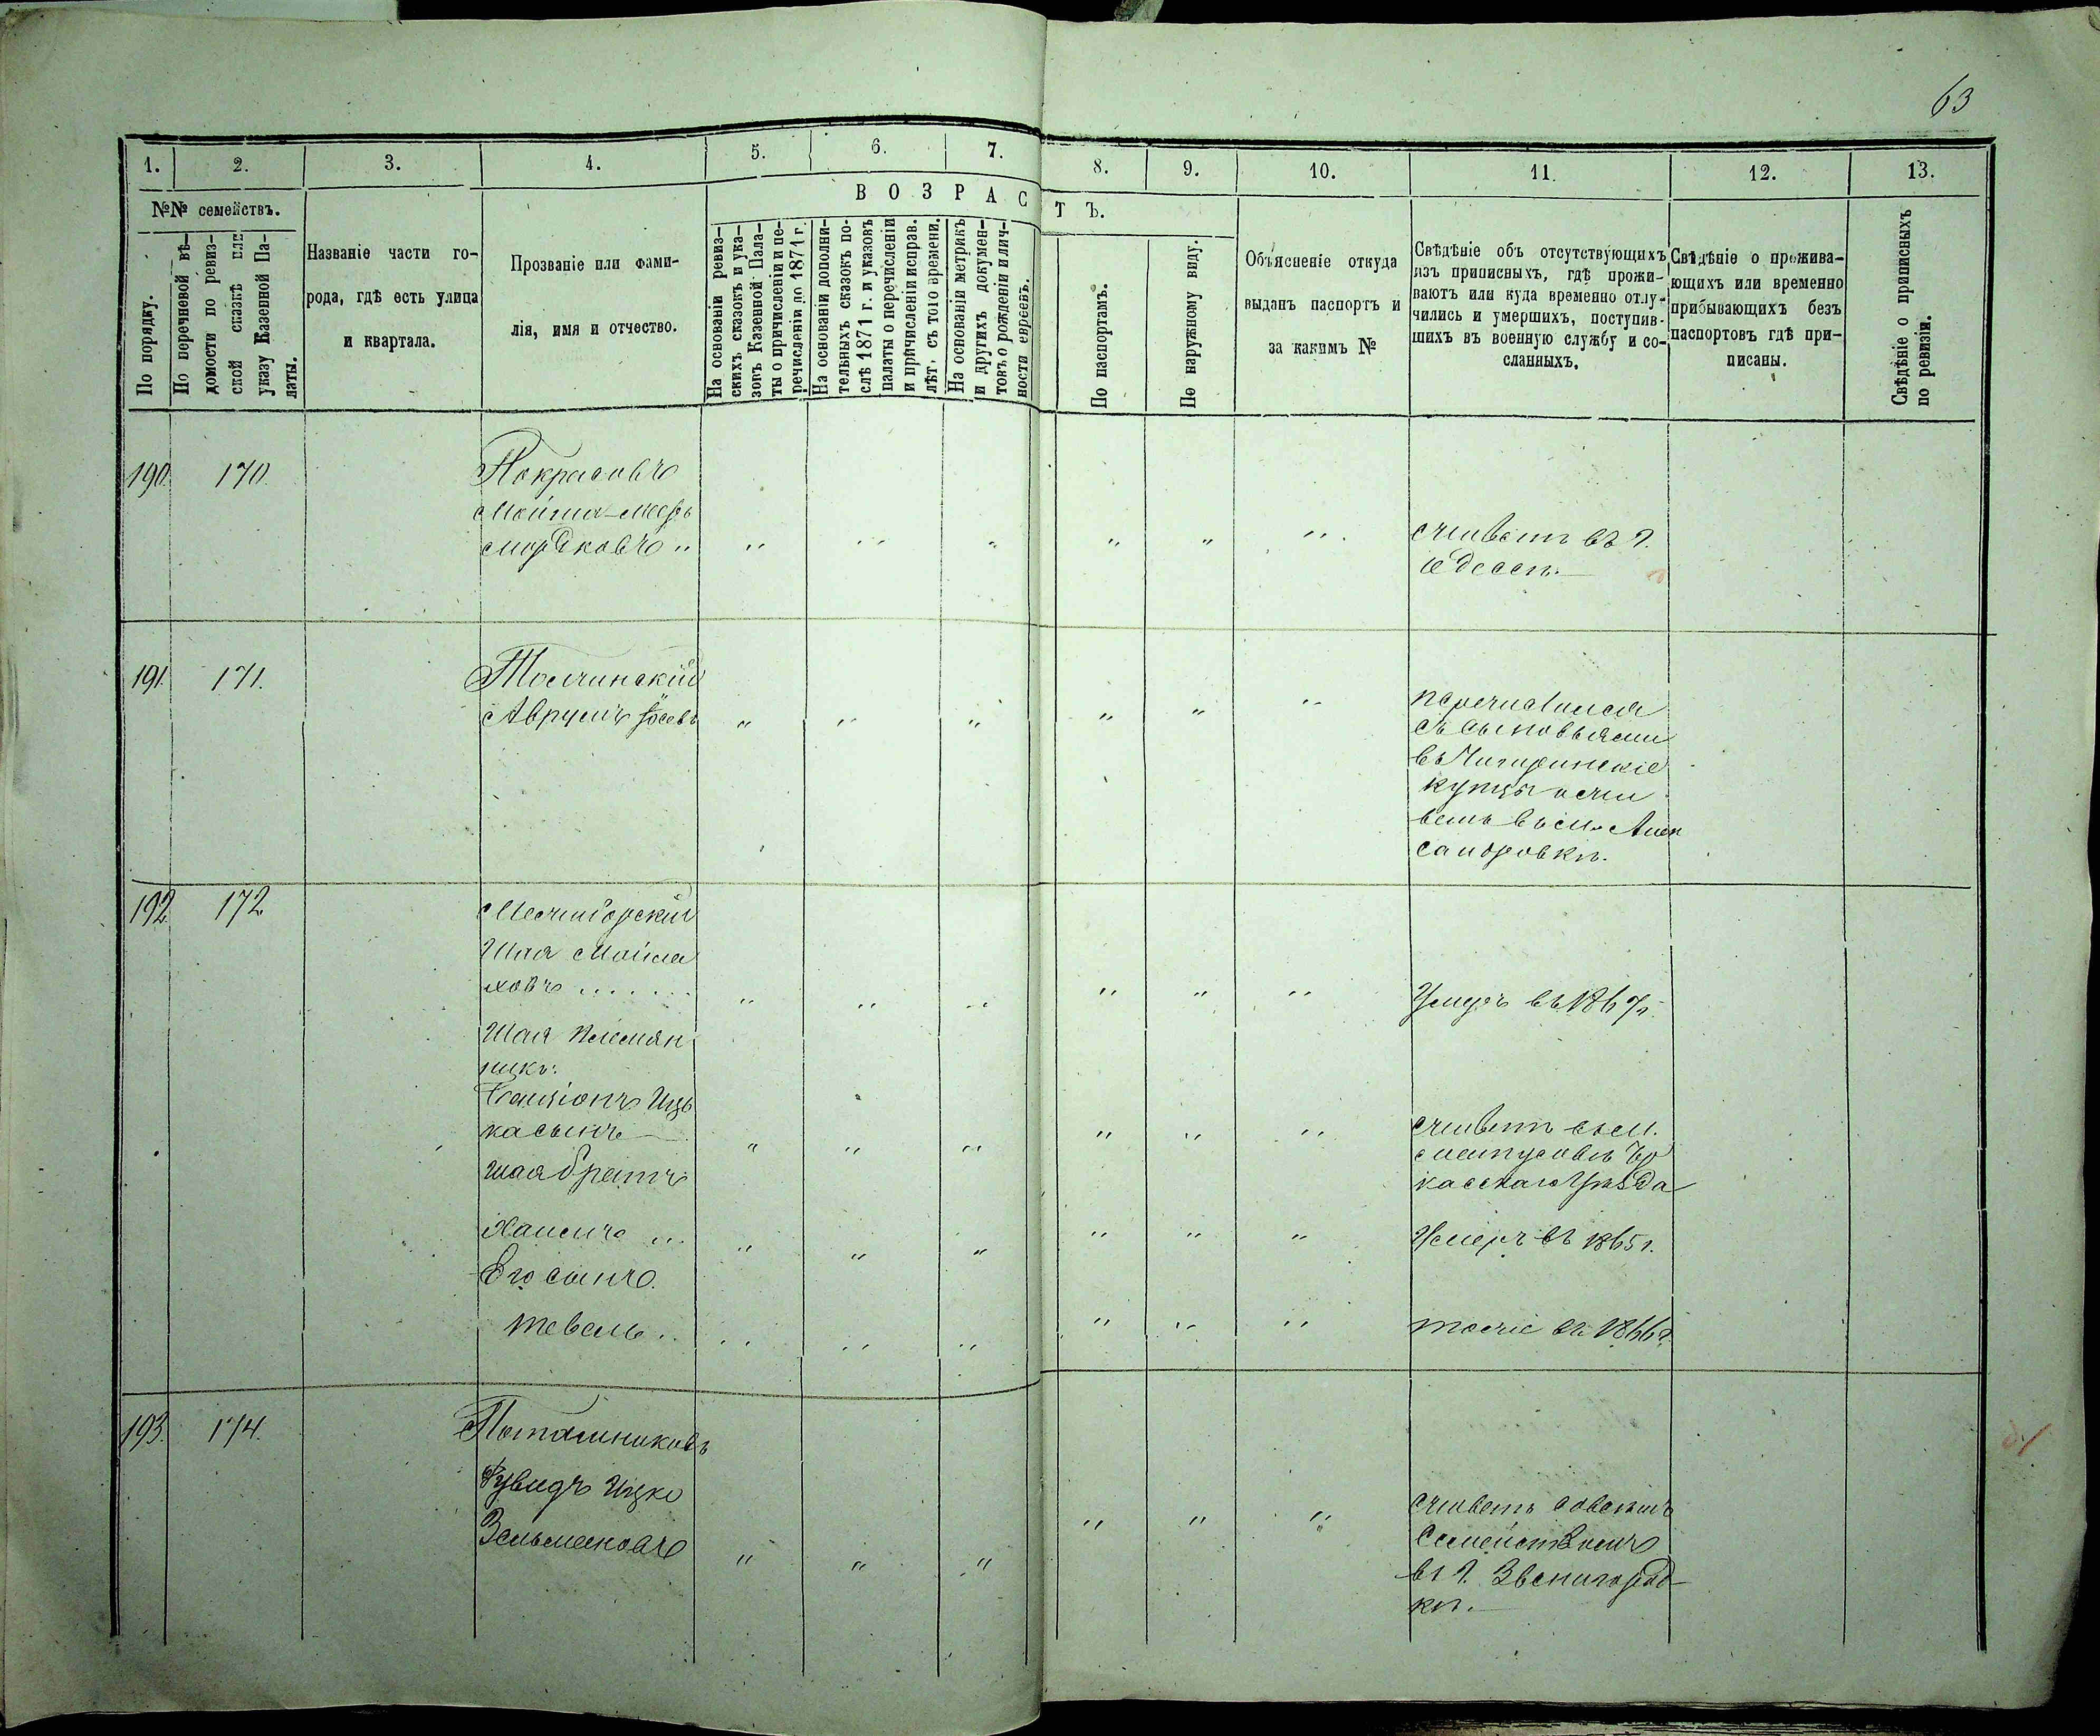 63
1. 2. 3. 4. 5. 6. 7. 8. 9. 10. 11. 12. 13.
№№ семействъ.
По порядку.
По перечневой вѣ-
домости по ревиз-
ской сказкѣ или
указу Казенной Па-
латы.
Названіе части го-
рода, гдѣ есть улица
и квартала.
Прозваніе или фами-
лія, имя и отчество.
ВОЗРАСТЪ.
На основаніи ревиз-
скихъ сказокъ и ука-
зовъ Казенной Пала-
ты о причисленіи и пе-
речисленіи до 1871 г.
На основаніи дополни-
тельныхъ сказокъ по-
слѣ 1871 г. и указовъ
палаты о перечисленіи
и причисленіи исправ.
лѣт. съ того времени.
На основаніи метрикъ
и другихъ докумен-
товъ о рожденіи и лич-
ности евреевъ.
По паспортамъ.
По наружному виду.
Объясненіе откуда
выданъ паспортъ и
за какимъ №
Свѣдѣніе объ отсутствующихъ
изъ приписныхъ, гдѣ прожи-
ваютъ или куда временно отлу-
чились и умершихъ, поступив-
шихъ въ военную службу и со-
сланныхъ.
Свѣдѣніе о прожива-
ющихъ или временно
прибывающихъ безъ
паспортовъ гдѣ при-
писаны.
Свѣдѣніе о приписныхъ
по ревизіи.
190. 170.
Покрасовъ
Мойша-Меръ
Мордковъ " " " " " " " живетъ въ г.
Одессѣ.
191. 171.
Аврумъ Іосевъ " " " " " " перечислился
съ сыновьями
въ Чигиринскіе
купцы и жи
ветъ въ м. Алек
сандровкѣ.
192. 172.
Межиборскій
Шая Мойсе
ховъ " " " " " " Умеръ въ 1867 г.
Шая племян
никъ.
Ицъ
ка сынъ " " " " " " живетъ въ м.
Чер
касскаго Уѣзда
Шая братъ
Хаимъ " " " " " " Умеръ въ 1865 г.
Его сынъ
Тевель " " " " " " тоже въ 1866 г.
193. 174.
Поташниковъ
Рувидъ Ицко
Зельмановъ " " " " " " живетъ со всѣмъ
Семействомъ
въ г. Звенигород
кѣ.